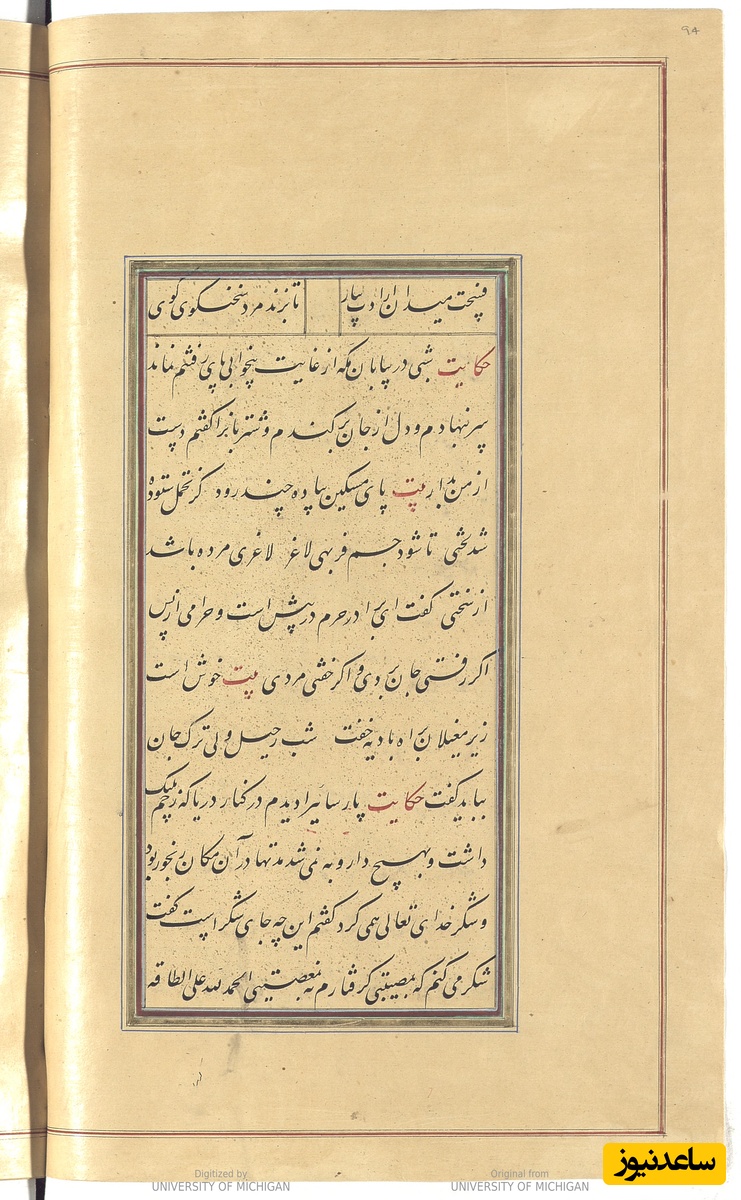 ۹۴
فسحت میدان ارادت بیار    تا بزند مرد سخنگوی گوی
حکایت شبی در بیابان مکه از غایت بیخوابی پای رفتنم نماند
سر بنهادم و دل از جان برکندم و شتربانرا گفتم دست
از من بدار بیت پای مسکین پیاده چند رود کز تحمل ستوه
شد بختی تا شود جسم فربهی لاغر لاغری مرده باشد
از سختی گفت ای برادر حرم در پیش است و حرامی از پس
اگر رفتی جان بردی و اگر خفتی مردی بیت خوش است
زیر مغیلان براه بادیه خفت شب رحیل ولی ترک جان
بباید گفت حکایت پارسائیرا دیدم در کنار دریا که زخم پلنگ
داشت و بهیچ دارو به نمی‌شد مدتها در آن مکان رنجور بود
و شکر خدای تعالی همی کرد گفتم این چه جای شکر است گفت
شکر می کنم که بمصیبتی گرفتارم نه بمعصیتی الحمد لله علی الطاقه
Digitized by
UNIVERSITY OF MICHIGAN
Original from
UNIVERSITY OF MICHIGAN
ساعدنیوز